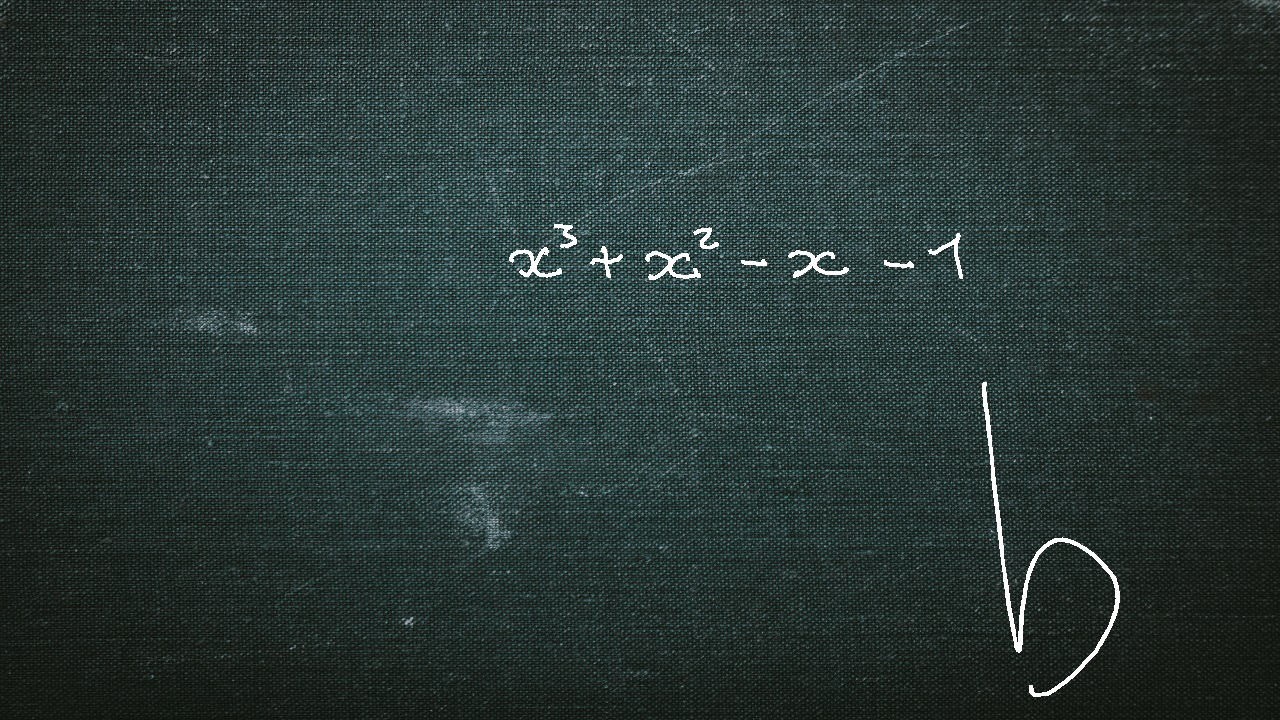 x³ + x² - x - 1
b